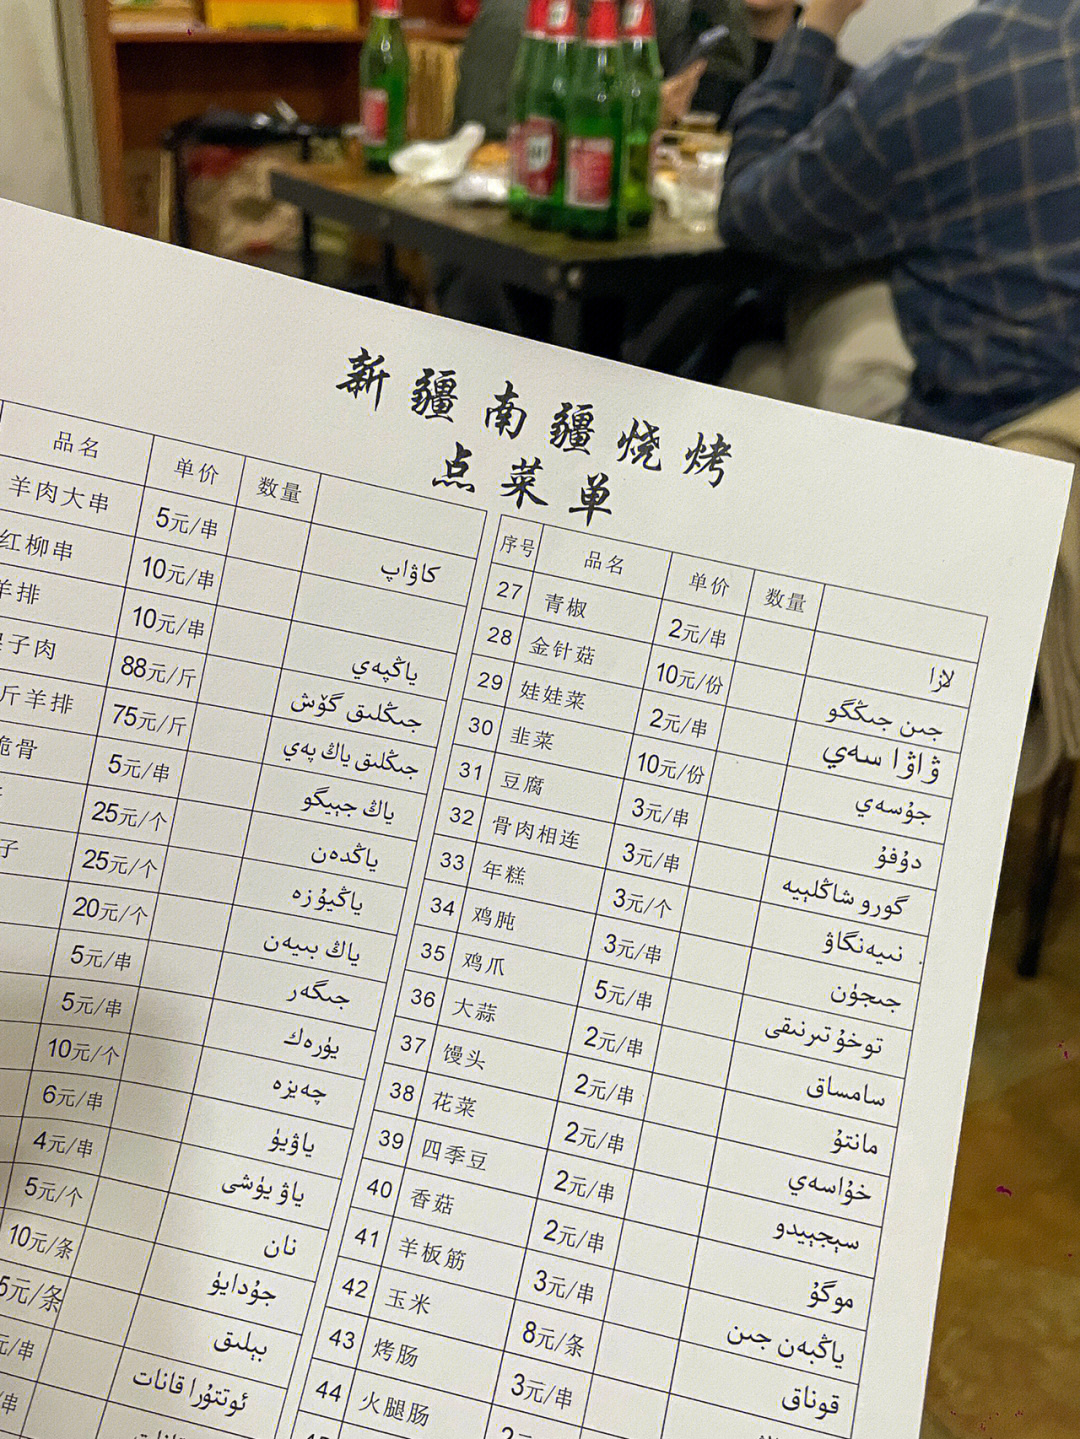 新疆南疆烧烤
点菜单
品名 单价 数量
羊肉大串 5元/串 كاۋاپ
红柳串 10元/串
羊排 10元/串 ياڭپەي
子肉 88元/斤 جىڭلىق گۆش
斤羊排 75元/斤 جىڭلىق ياڭ پەي
脆骨 5元/串 ياڭ جېيگو
25元/个 ياڭدەن
子 25元/个 ياڭيۇزە
20元/个 ياڭ بىيەن
5元/串 جىگەر
5元/串 يۈرەك
10元/个 چەيزە
6元/串 ياۋيۈ
4元/串 ياۋ يۈشى
5元/个 نان
10元/条 جۇدايۈ
5元/条 بېلىق
元/串 ئوتتۇرا قانات
串
序号 品名 单价 数量
27 青椒 2元/串 لازا
28 金针菇 10元/份 جىن جىڭگو
29 娃娃菜 2元/串 ۋاۋا سەي
30 韭菜 10元/份 جۇسەي
31 豆腐 3元/串 دۇفۇ
32 骨肉相连 3元/串 گورو شاڭلىيە
33 年糕 3元/个 نىيەنگاۋ
34 鸡肫 3元/串 جىجۈن
35 鸡爪 5元/串 توخۇ تىرنىقى
36 大蒜 2元/串 سامساق
37 馒头 2元/串 مانتۇ
38 花菜 2元/串 خۇاسەي
39 四季豆 2元/串 سېجىيدو
40 香菇 2元/串 موگۇ
41 羊板筋 3元/串 ياڭبەن جىن
42 玉米 8元/条 قوناق
43 烤肠 3元/串
44 火腿肠